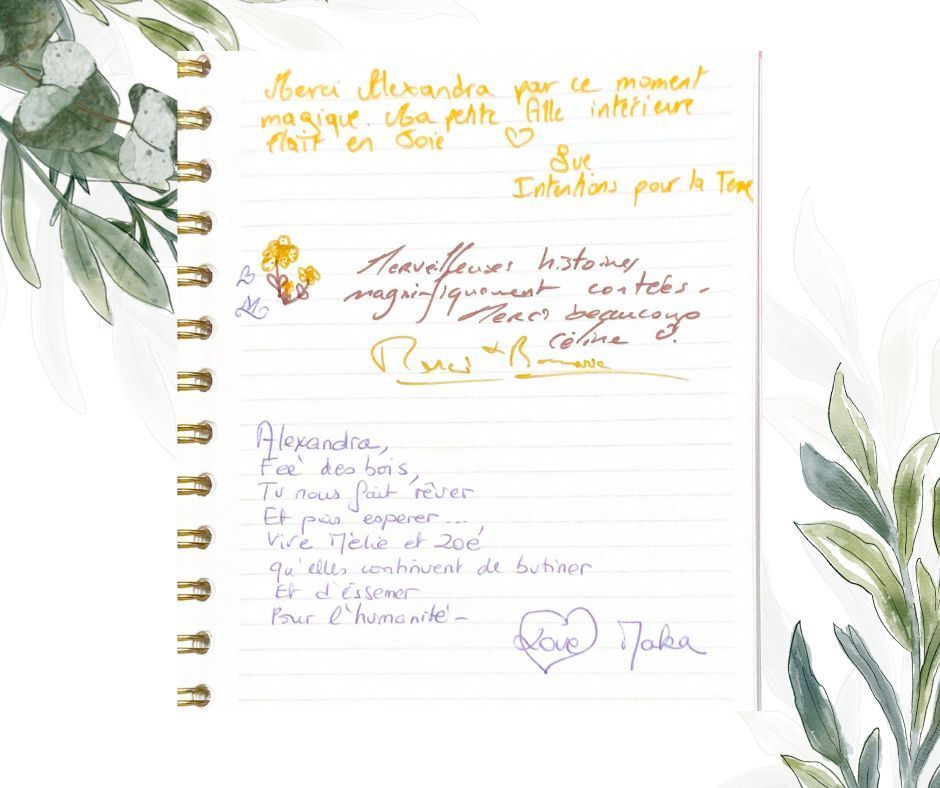 Merci Alexandra par ce moment
magique. Ma petite fille intérieure
était en Joie
Sue
Intentions pour la Terre
Merveilleuses histoires
magnifiquement contées.
Merci beaucoup
Céline
Merci +
Alexandra,
Feé des bois,
Tu nous fait rêver
Et puis esperer...
Vive Mélie et Zoé
qu'elles continuent de butiner
Et d'éssemer
Pour l'humanité-
Love Maka